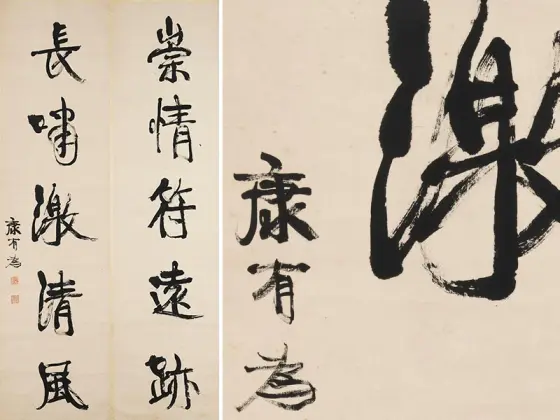 崇情符遠跡
長嘯激清風
康有為
激
康有為